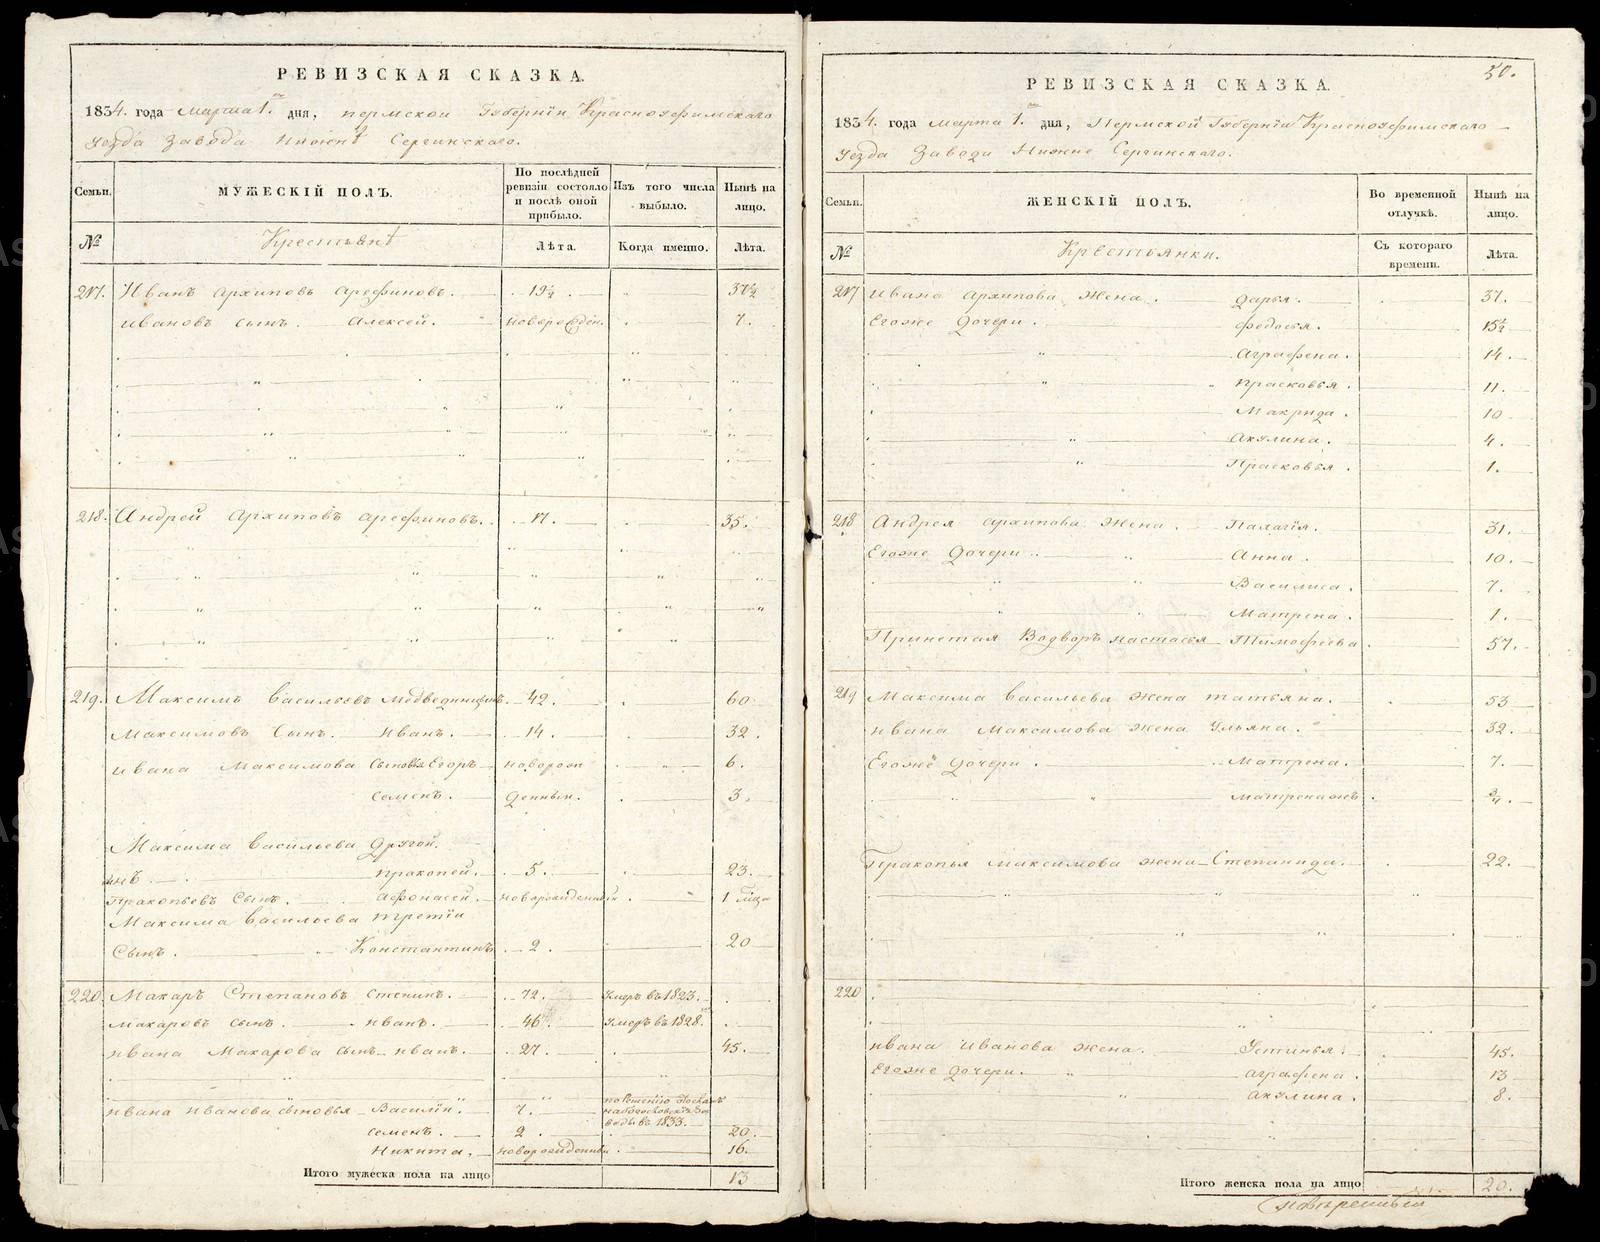 РЕВИЗСКАЯ СКАЗКА.
1834. года Марта 1. дня, Пермской Губернии Красноуфимскаго
Уезда Завода Нижне Сергинскаго.
Семьи. МУЖЕСКІЙ ПОЛЪ. По послѣдней ревизіи состояло и послѣ оной прибыло. Изъ того числа выбыло. Нынѣ на лицо.
№ Крестьянѣ Лѣта. Когда именно. Лѣта.
217. Иванъ Архиповъ Арефиновъ. 19½ 37½
Ивановъ сынъ. Алексей. новорожден. 7.
218. Андрей Архиповъ Арефиновъ. 17. 35.
219. Максимъ Васильевъ Медведицынъ. 42. 60
Максимовъ Сынъ. Иванъ. 14. 32.
Ивана Максимова Сыновья Егоръ новорож 6.
Семенъ. денным. 3.
Максима Васильева Другой.
Прокопей. 5. 23.
Пракопьевъ Сынъ. Афонасей. новорожденный. 1
Максима Васильева третїи
Сынъ. Константинъ 2. 20
220. Макаръ Степановъ Степин. 72. Умеръ въ 1823.
Макаровъ сынъ. Иванъ. 46. Умеръ въ 1828.
Ивана Макарова сынъ Иванъ. 27. 45.
Ивана Иванова сыновья Василїи. 7. въ 1833.
Семенъ. 2. 20.
Никита. новорожденный. 16.
Итого мужеска пола на лицо 13
50.
РЕВИЗСКАЯ СКАЗКА.
1834. года Марта 1. дня, Пермской Губернїи Красноуфимскаго
Уезда Завода Нижне Сергинскаго.
Семьи. ЖЕНСКІЙ ПОЛЪ. Во временной отлучкѣ. Нынѣ на лицо.
№ Крестьянки. Съ котораго времени. Лѣта.
217 Ивана Архипова Жена. Дарья. 37.
Егоже Дочери. Федосья. 15½
Аграфена. 14.
Прасковья. 11.
Макрида. 10
Акулина. 4.
Прасковья. 1.
218 Андрея Архипова Жена. Палагїя. 31.
Егоже Дочери Анна. 10.
Василиса. 7.
Матрена. 1.
Принетая Водворъ Настасья Тимофеева 57.
219 Максима Васильева жена Татьяна. 53
Ивана Максимова жена Ульяна. 32.
Егоже Дочери. Матрена. 7.
Матренажъ
Пракопья Максимова жена Степанида. 22.
220
Ивана Иванова жена. Устинья. 45.
Егоже Дочери. Аграфена. 13
Акулина. 8.
Итого женска пола на лицо 20.